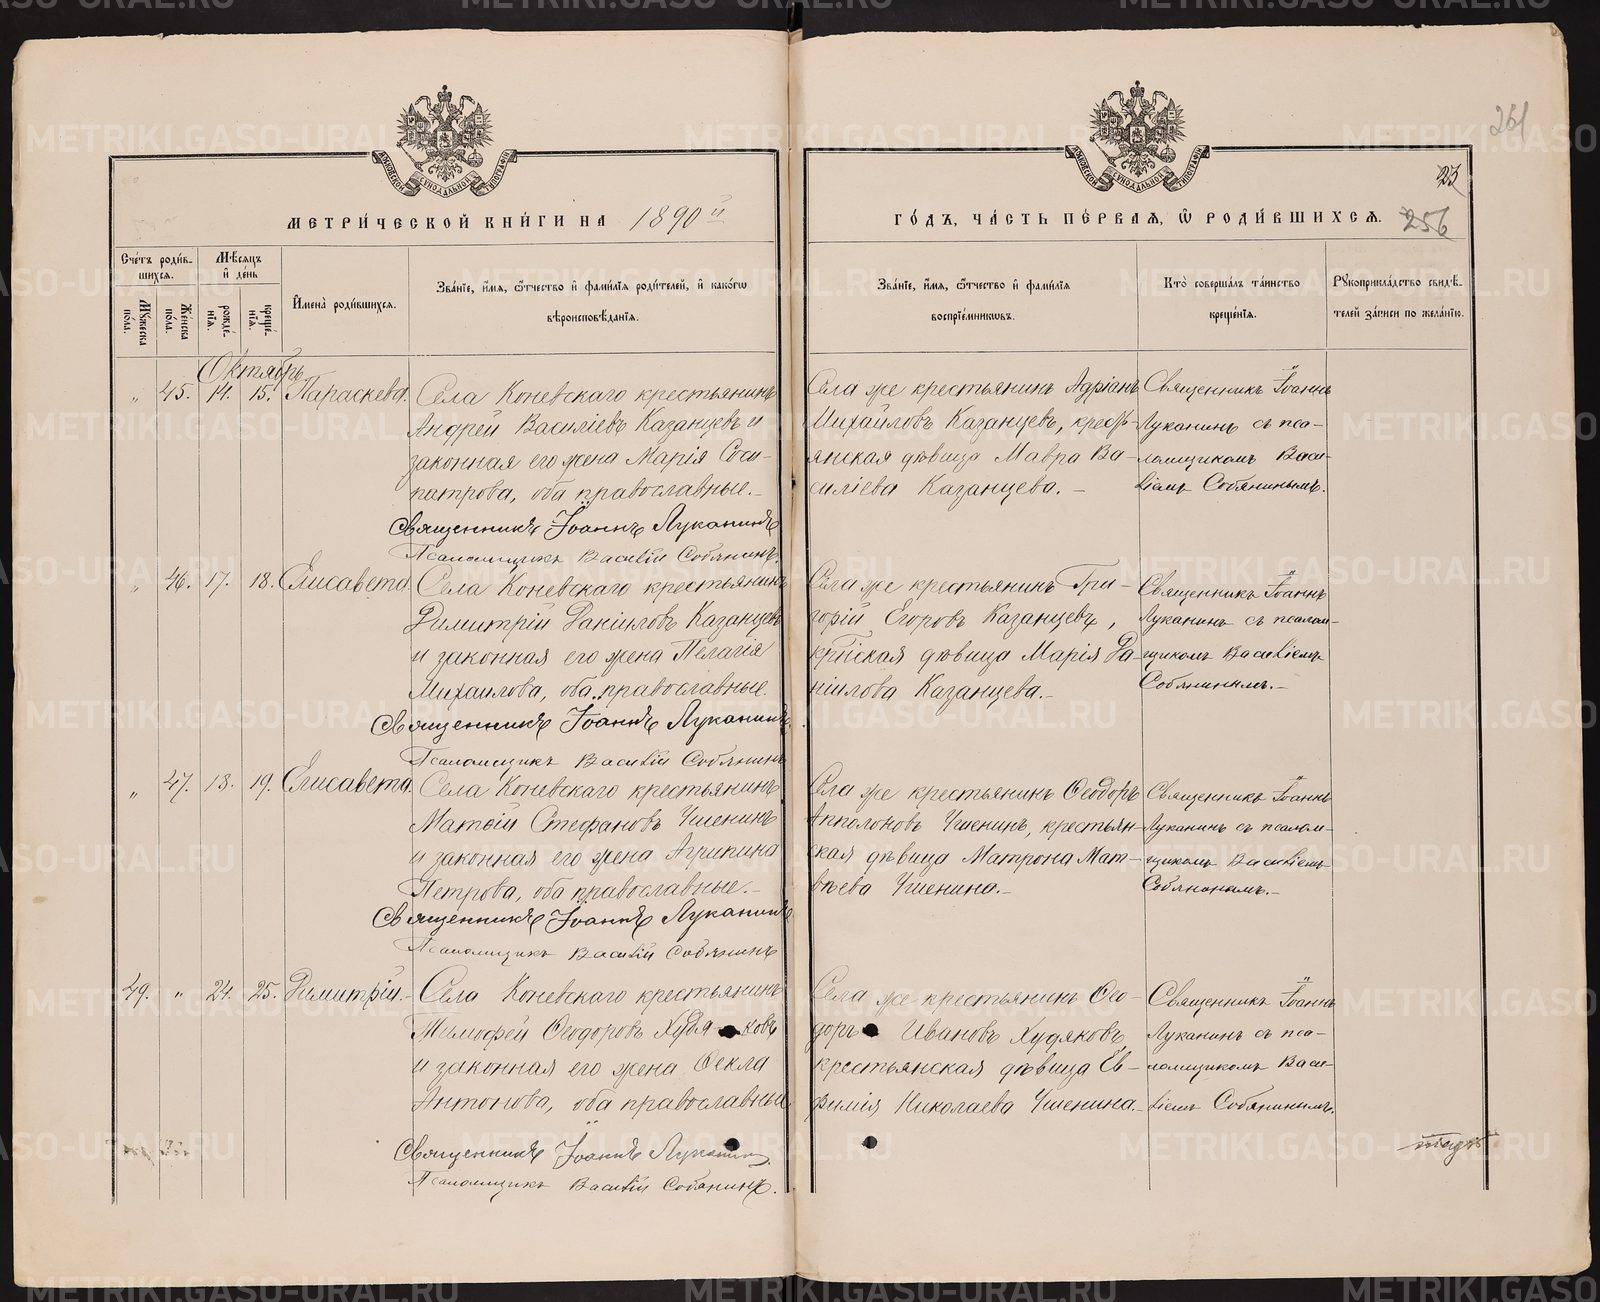 261
23
256
МЕТРИ́ЧЕСКОЙ КНИ́ГИ НА 1890й
ГО́ДЪ, ЧА́СТЬ ПЕ́РВАѦ, Ѡ҆ РОДИ́ВШИХСѦ.
Сче́тъ роди́вшихсѧ.
Мѣ́сѧцъ и҆ де́нь
Мꙋ́жеска по́ла.
Же́нска по́ла.
рожде́нїѧ.
креще́нїѧ.
И҆мена̀ роди́вшихсѧ.
Зва́нїе, и҆́мѧ, ѻ҆́тчество и҆ фами́лїѧ роди́телей, и҆ како́гѡ
вѣроисповѣ́данїѧ.
Зва́нїе, и҆́мѧ, ѻ҆́тчество и҆ фами́лїѧ
воспрїе́мниковъ.
Кто̀ соверша́лъ та́инство
креще́нїѧ.
Рꙋкоприкла́дство свидѣ́телей за́писи по жела́нїю.
Октябрь
„ 45. 14. 15. Параскева.
Села Коневскаго крестьянинъ
Андрей Василіевъ Казанцевъ и
законная его жена Марія Соси-
патрова, оба православные.-
Священникъ Іоаннъ Луканинъ
Псаломщикъ Василій Собянинъ.
Села же крестьянинъ Адріанъ
Михайловъ Казанцевъ, кресть-
янская дѣвица Мавра Ва-
силіева Казанцева. -
Священникъ Іоаннъ
Луканинъ съ пса-
ломщикомъ Васи-
ліемъ Собянинымъ.
„ 46. 17. 18. Елисавета.
Села Коневскаго крестьянинъ
Димитрій Даніиловъ Казанцевъ
и законная его жена Пелагія
Михаилова, оба православные.
Священникъ Іоаннъ Луканинъ
Псаломщикъ Василій Собянинъ
Села же крестьянинъ Гри-
горій Егоровъ Казанцевъ,
дѣвица Марія Да-
ніилова Казанцева.-
Священникъ Іоаннъ
Луканинъ съ псалом-
щикомъ Василіемъ
Собянинымъ.-
„ 47. 18. 19. Елисавета.
Села Коневскаго крестьянинъ
Матѳій Стефановъ Ушенинъ
и законная его жена Агрипина
Петрова, оба православные.-
Священникъ Іоаннъ Луканинъ
Псаломщикъ Василій Собянинъ
Села же крестьянинъ Ѳеодоръ
Апполоновъ Ушенинъ, крестьян-
ская дѣвица Матрона Мат-
вѣева Ушенина.-
Священникъ Іоаннъ
Луканинъ съ псалом-
щикомъ Василіемъ
Собянинымъ.-
49. „ 24. 25. Димитрій.-
Села Коневскаго крестьянинъ
Тимофей Ѳеодоровъ Худяковъ
и законная его жена Ѳекла
Антонова, оба православные
Священникъ Іоаннъ Луканинъ
Псаломщикъ Василій Собянинъ.
Села же крестьянинъ Ѳео-
доръ Ивановъ Худяковъ,
крестьянская дѣвица Ев-
фимія Николаева Ушенина.-
Священникъ Іоаннъ
Луканинъ съ пса-
ломщикомъ Васи-
ліемъ Собянинымъ.